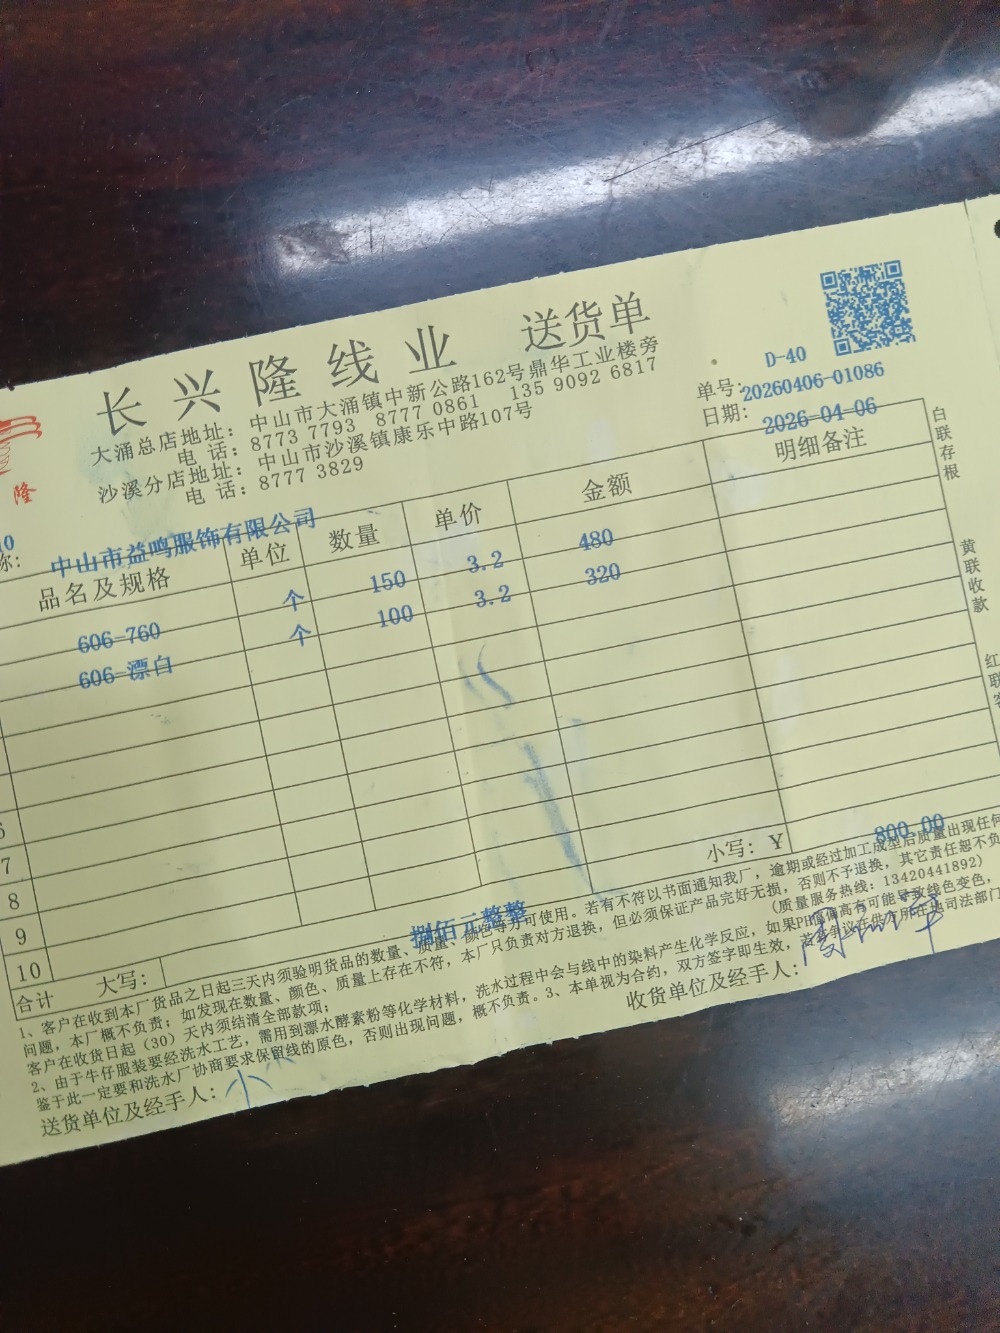 长兴隆线业 送货单
大涌总店地址：中山市大涌镇中新公路162号鼎华工业楼旁
电 话：8773 7793 8777 0861 135 9092 6817
沙溪分店地址：中山市沙溪镇康乐中路107号
电 话：8777 3829
隆
D-40
单号：20260406-01086
日期：2026-04-06
称：中山市益鸣服饰有限公司
品名及规格 单位 数量 单价 金额 明细备注
606-760 个 150 3.2 480
606-漂白 个 100 3.2 320
6
7
8
9
10
合计 大写：捌佰元整整 小写：￥ 800.00
1、客户在收到本厂货品之日起三天内须验明货品的数量、质量、颜色等方可使用。若有不符以书面通知我厂，逾期或经过加工成型后质量出现任何
问题，本厂概不负责；如发现在数量、颜色、质量上存在不符，本厂只负责对方退换，但必须保证产品完好无损，否则不予退换，其它责任恕不负
客户在收货日起（30）天内须结清全部款项；
（质量服务热线：13420441892）
2、由于牛仔服装要经洗水工艺，需用到漂水酵素粉等化学材料，洗水过程中会与线中的染料产生化学反应，如果PH值偏高有可能导致线色变色，
鉴于此一定要和洗水厂协商要求保留线的原色，否则出现问题，概不负责。3、本单视为合约，双方签字即生效，若有争议任供方所在地司法部门
送货单位及经手人：
收货单位及经手人：
白联存根
黄联收款
红联客